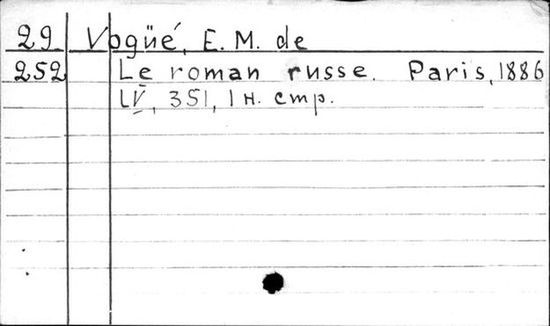 29 Vogüé, E. M. de
252 Le roman russe. Paris, 1886
LV, 351, 1 н. стр.